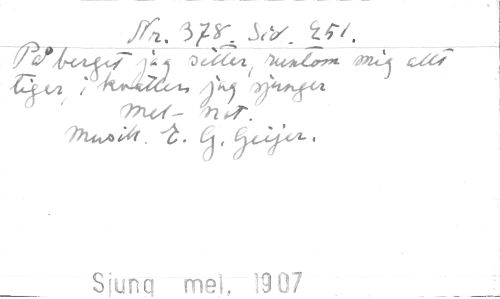 Nr. 378. Sid. 251.
På berget jag sitter, runtom mig allt
tiger, i kvällen jag sjunger
Mel- not.
Musik. E. G. Geijer.
Sjung mel, 1907